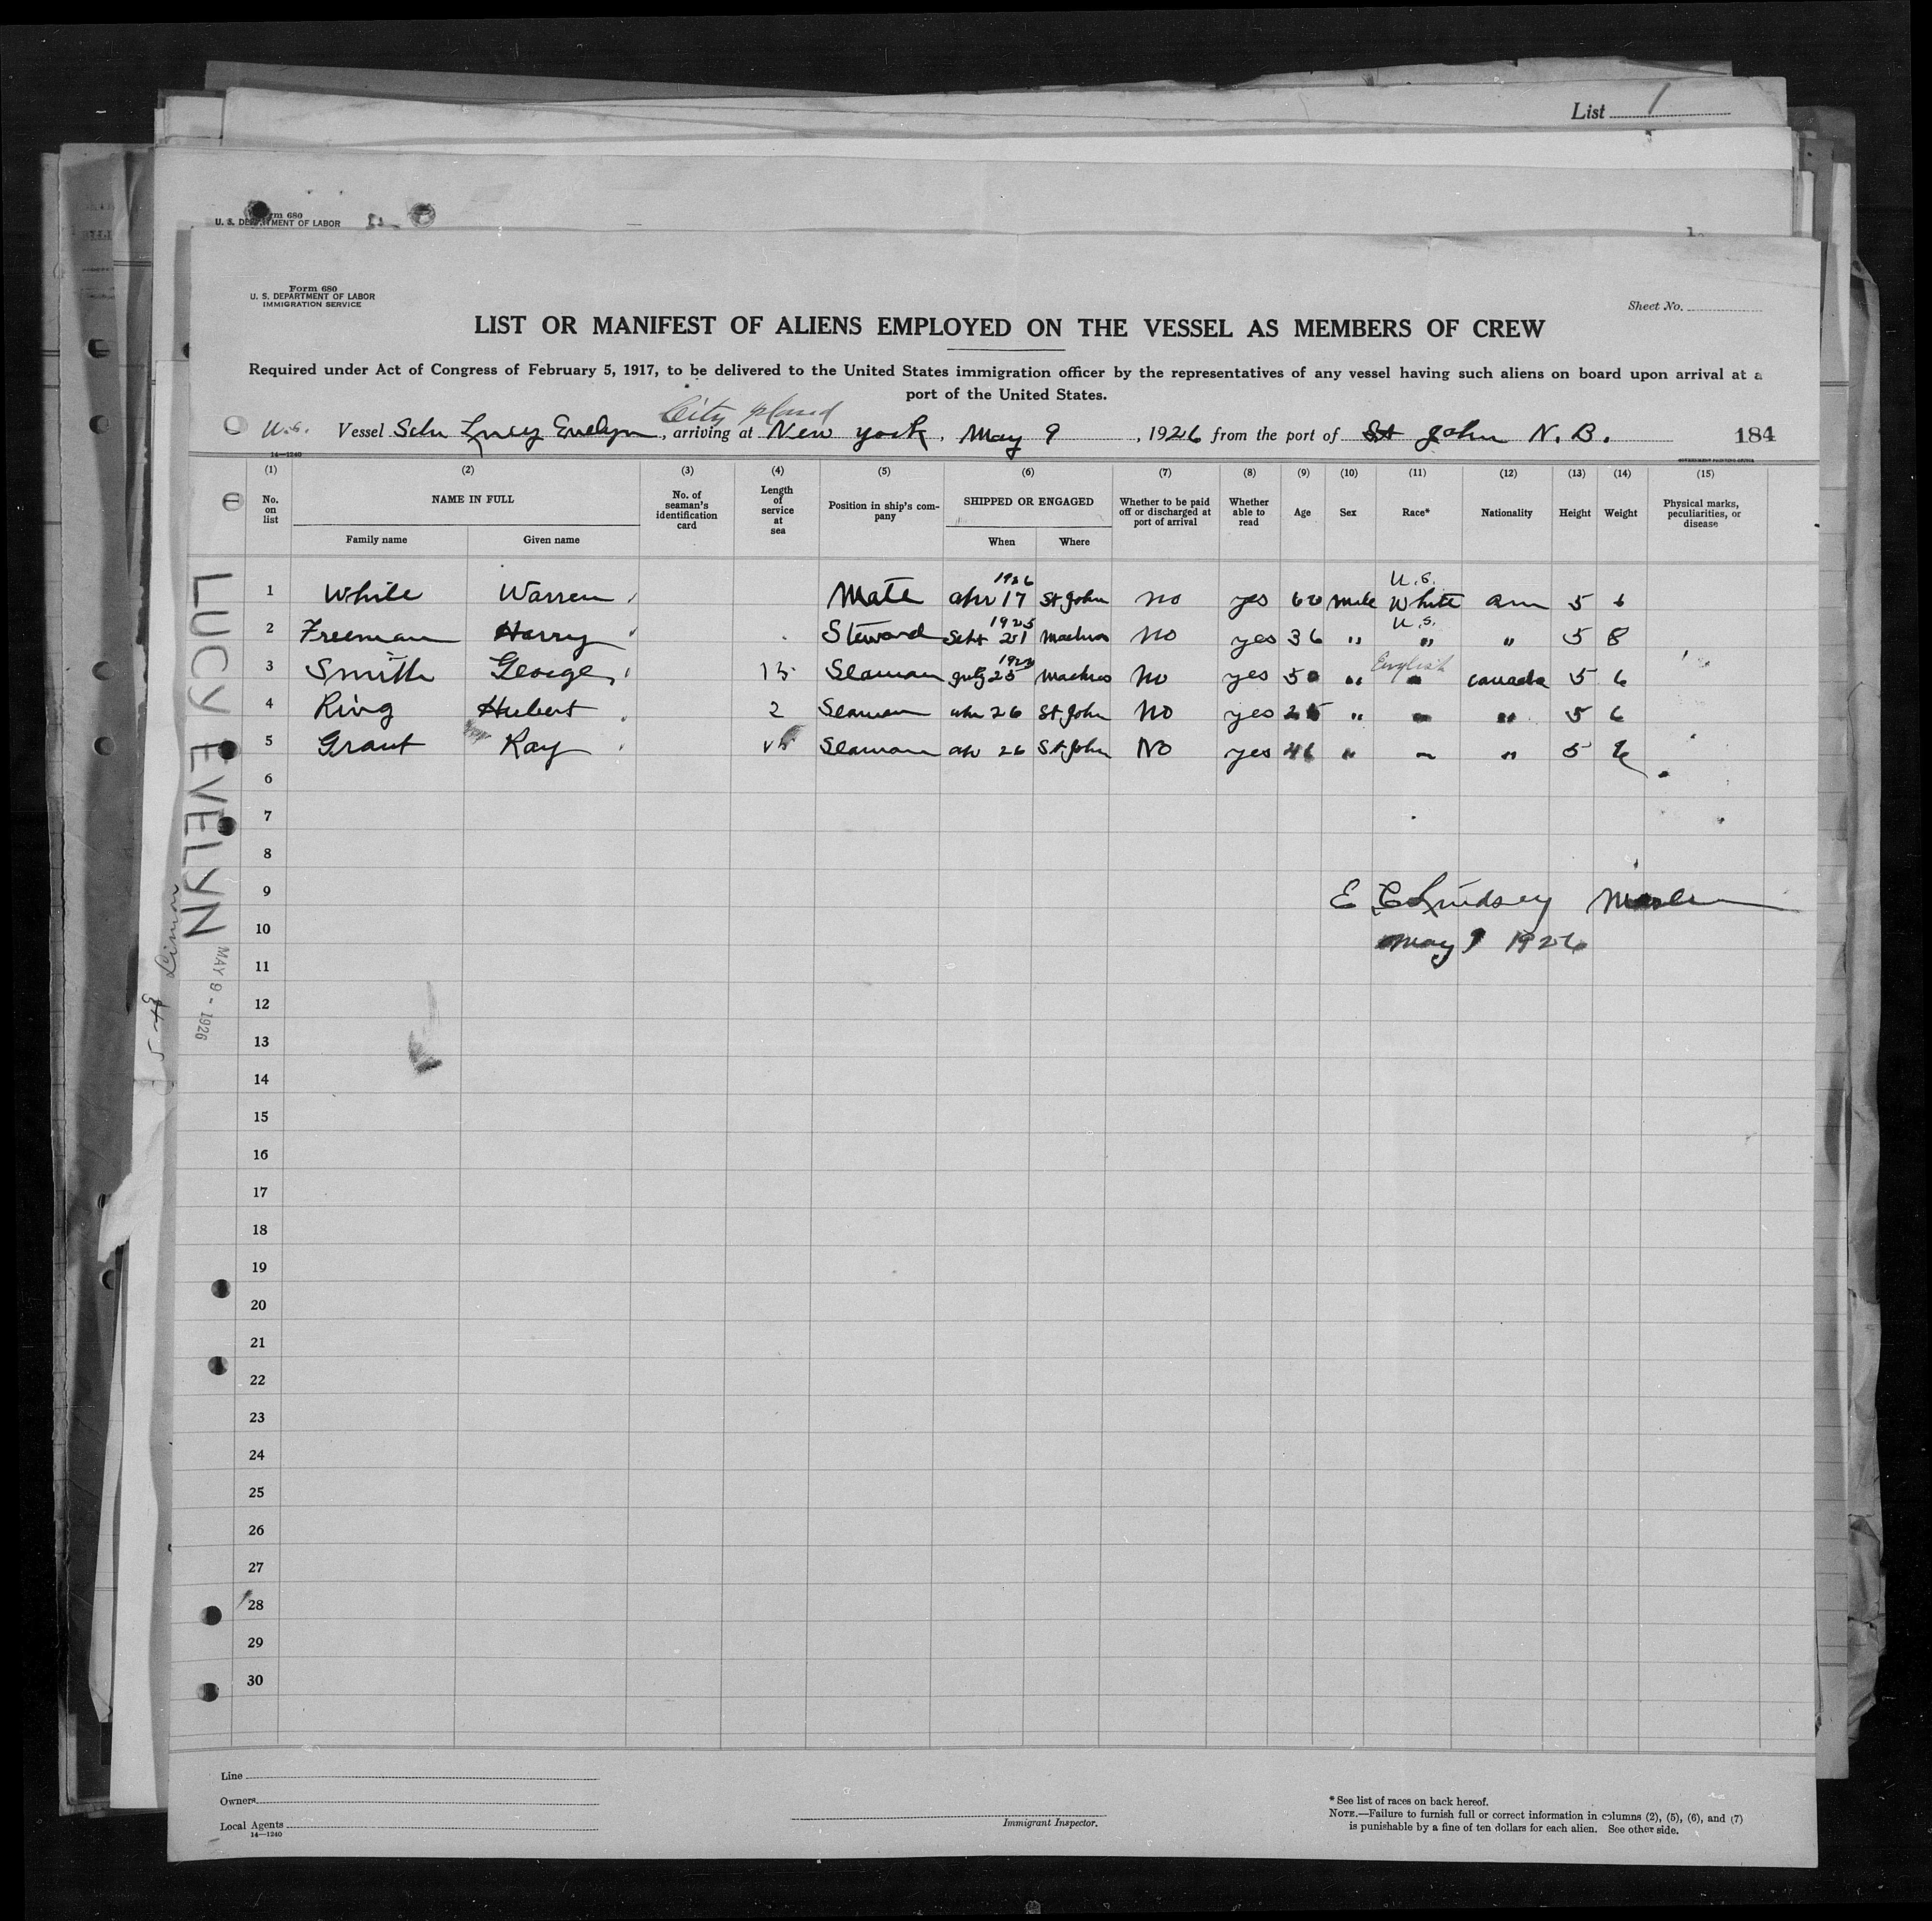 List 1
Form 680
U. S. DEPARTMENT OF LABOR
Form 680
U. S. DEPARTMENT OF LABOR
IMMIGRATION SERVICE
Sheet No.
LIST OR MANIFEST OF ALIENS EMPLOYED ON THE VESSEL AS MEMBERS OF CREW
Required under Act of Congress of February 5, 1917, to be delivered to the United States immigration officer by the representatives of any vessel having such aliens on board upon arrival at a
port of the United States.
City Island
U.S. Vessel Schr Lucy Evelyn, arriving at New york, May 9, 1926 from the port of St John N. B. 184
14—1240
(1) (2) (3) (4) (5) (6) (7) (8) (9) (10) (11) (12) (13) (14) (15)
No. on list NAME IN FULL Family name Given name No. of seaman's identification card Length of service at sea Position in ship's company SHIPPED OR ENGAGED When Where Whether to be paid off or discharged at port of arrival Whether able to read Age Sex Race* Nationality Height Weight Physical marks, peculiarities, or disease
1926 U.S.
1 White Warren Mate apr 17 St John no yes 60 male White am 5 6
1925 U.S.
2 Freeman Harry Steward Sept 21 Machias No yes 36 " " " 5 8
English
3 Smith George 15 Seaman July 25 Machias No yes 50 " " canada 5 6
4 Ring Hubert 2 Seaman apr 26 St John No yes 25 " " " 5 6
5 Grant Ray Seaman apr 26 St John No yes 46 " " " 5
6
7
8
9
E C Lindsey Master
10
May 9 1926
11
12
13
14
15
16
17
18
19
20
21
22
23
24
25
26
27
28
29
30
LUCY EVELYN
MAY 9 - 1926
Limon
Line
Owners
Local Agents
14—1240
Immigrant Inspector.
* See list of races on back hereof.
NOTE.—Failure to furnish full or correct information in columns (2), (5), (6), and (7)
is punishable by a fine of ten dollars for each alien. See other side.